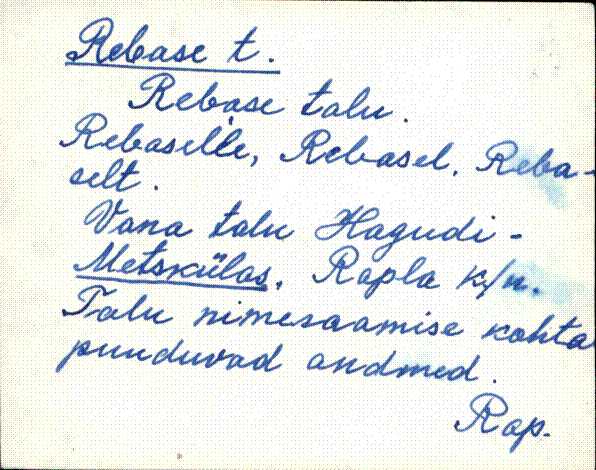 Rebase t.
Rebase talu.
Rebaselle, Rebasel, Reba-
selt.
Vana talu Hagudi-
Metskülas, Rapla k/n.
Talu nimesaamise kohta
puuduvad andmed.
Rap.